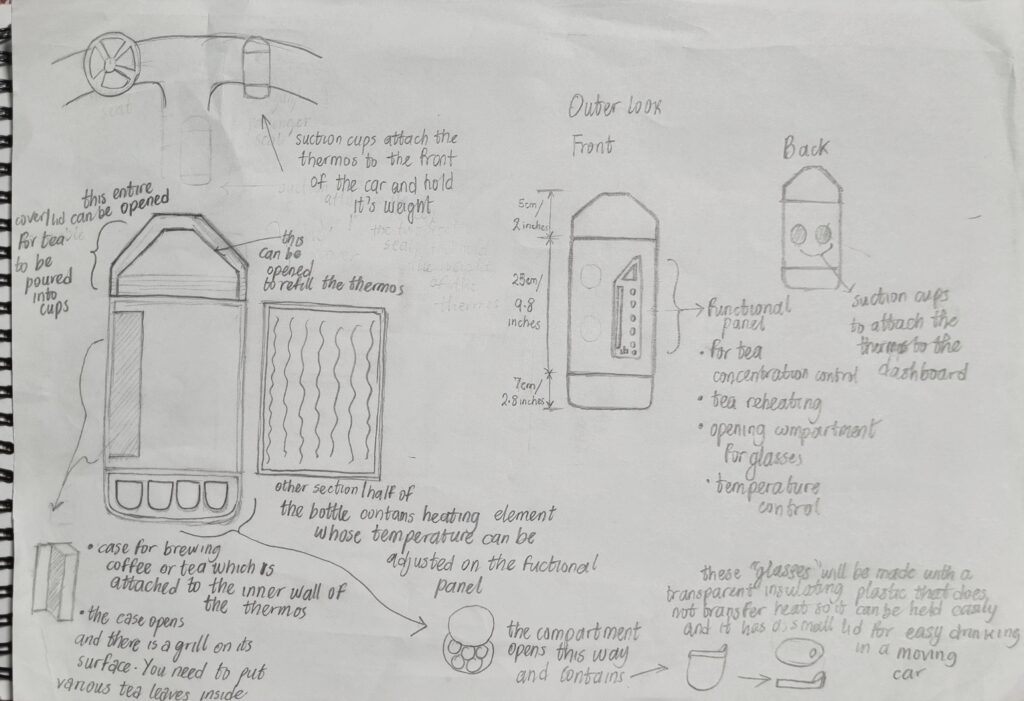 seat
suction cups attach the
thermos to the front
of the car and hold
it's weight
this entire
cover/lid can be opened
for tea
to be
poured
into
cups
this
can be
opened
to refill the thermos
other section/half of
the bottle contans heating element
whose temperature can be
adjusted on the fuctional
panel
• case for brewing
coffee or tea which is
attached to the inner wall of
the thermos
• the case opens
and there is a grill on its
surface. You need to put
various tea leaves inside
the compartment
opens this way
and contains
these "glasses" will be made with a
transparent insulating plastic that does
not transfer heat so it can be held easily
and it has a small lid for easy drinking
in a moving
car
Outer look
Front
5cm/
2 inches
25cm/
9.8
inches
7cm/
2.8 inches
Functional
panel
• for tea
concentration control
• tea reheating
• opening compartment
for glasses
• temperature
control
Back
suction cups
to attach the
thermos to the
dashboard